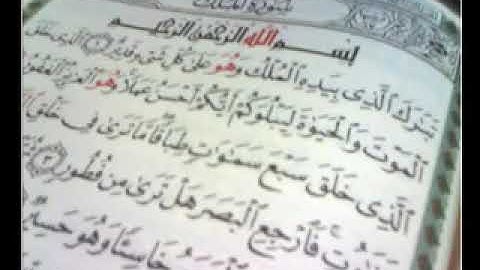 سورة الملك
بسم الله الرحمن الرحيم
تبرك الذي بيده الملك وهو على كل شيء قدير ١ الذي خلق
الموت والحيوة ليبلوكم أيكم أحسن عملا وهو العزيز الغفور
الذي خلق سبع سموت طباقا ما ترى في خلق
فارجع البصر هل ترى من فطور ٣
خاسئا وهو حسير